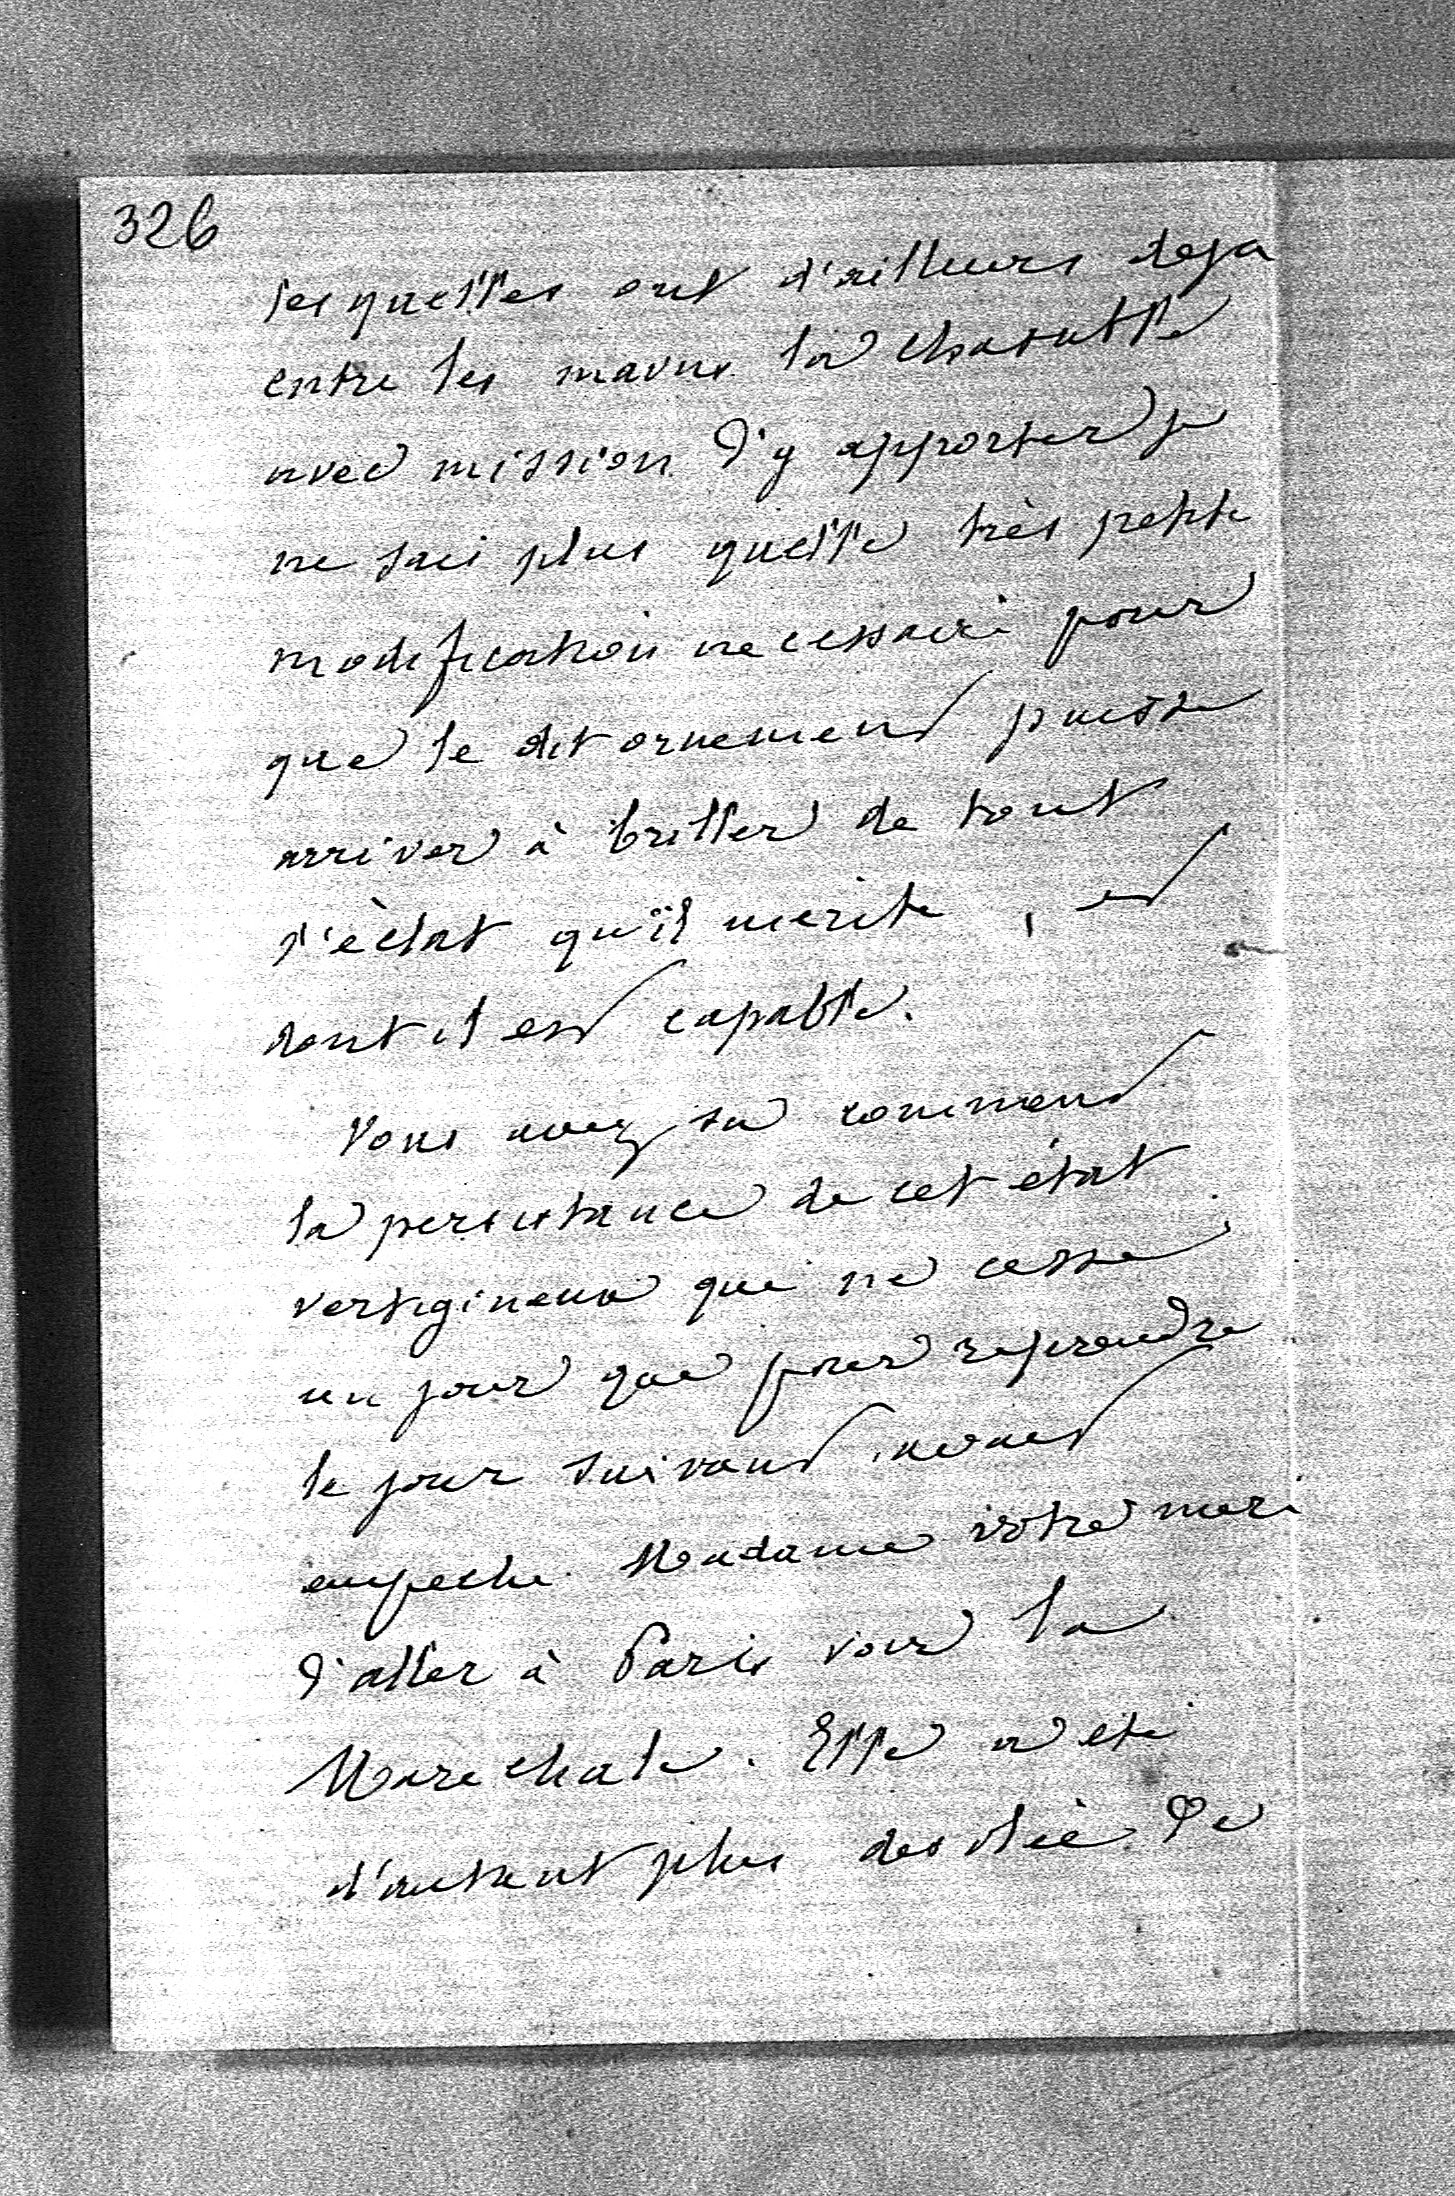 326
lesquelles ont d'ailleurs deja
entre les mains la chasuble
avec mission d'y apporter je
ne sais plus quelle très petite
modification necessaire pour
que le dit ornement puisse
arriver à briller de tout
l'èclat qu'il merite, et
dont il est capable.
Vous avez su comment
la persistance de cet état
vertigineux qui ne cesse
un jour que pour reprendre
le jour suivant, avait
empeche Madame votre mere
d'aller à Paris voir la
Marechale. Elle a eté
d'autant plus desolèe de